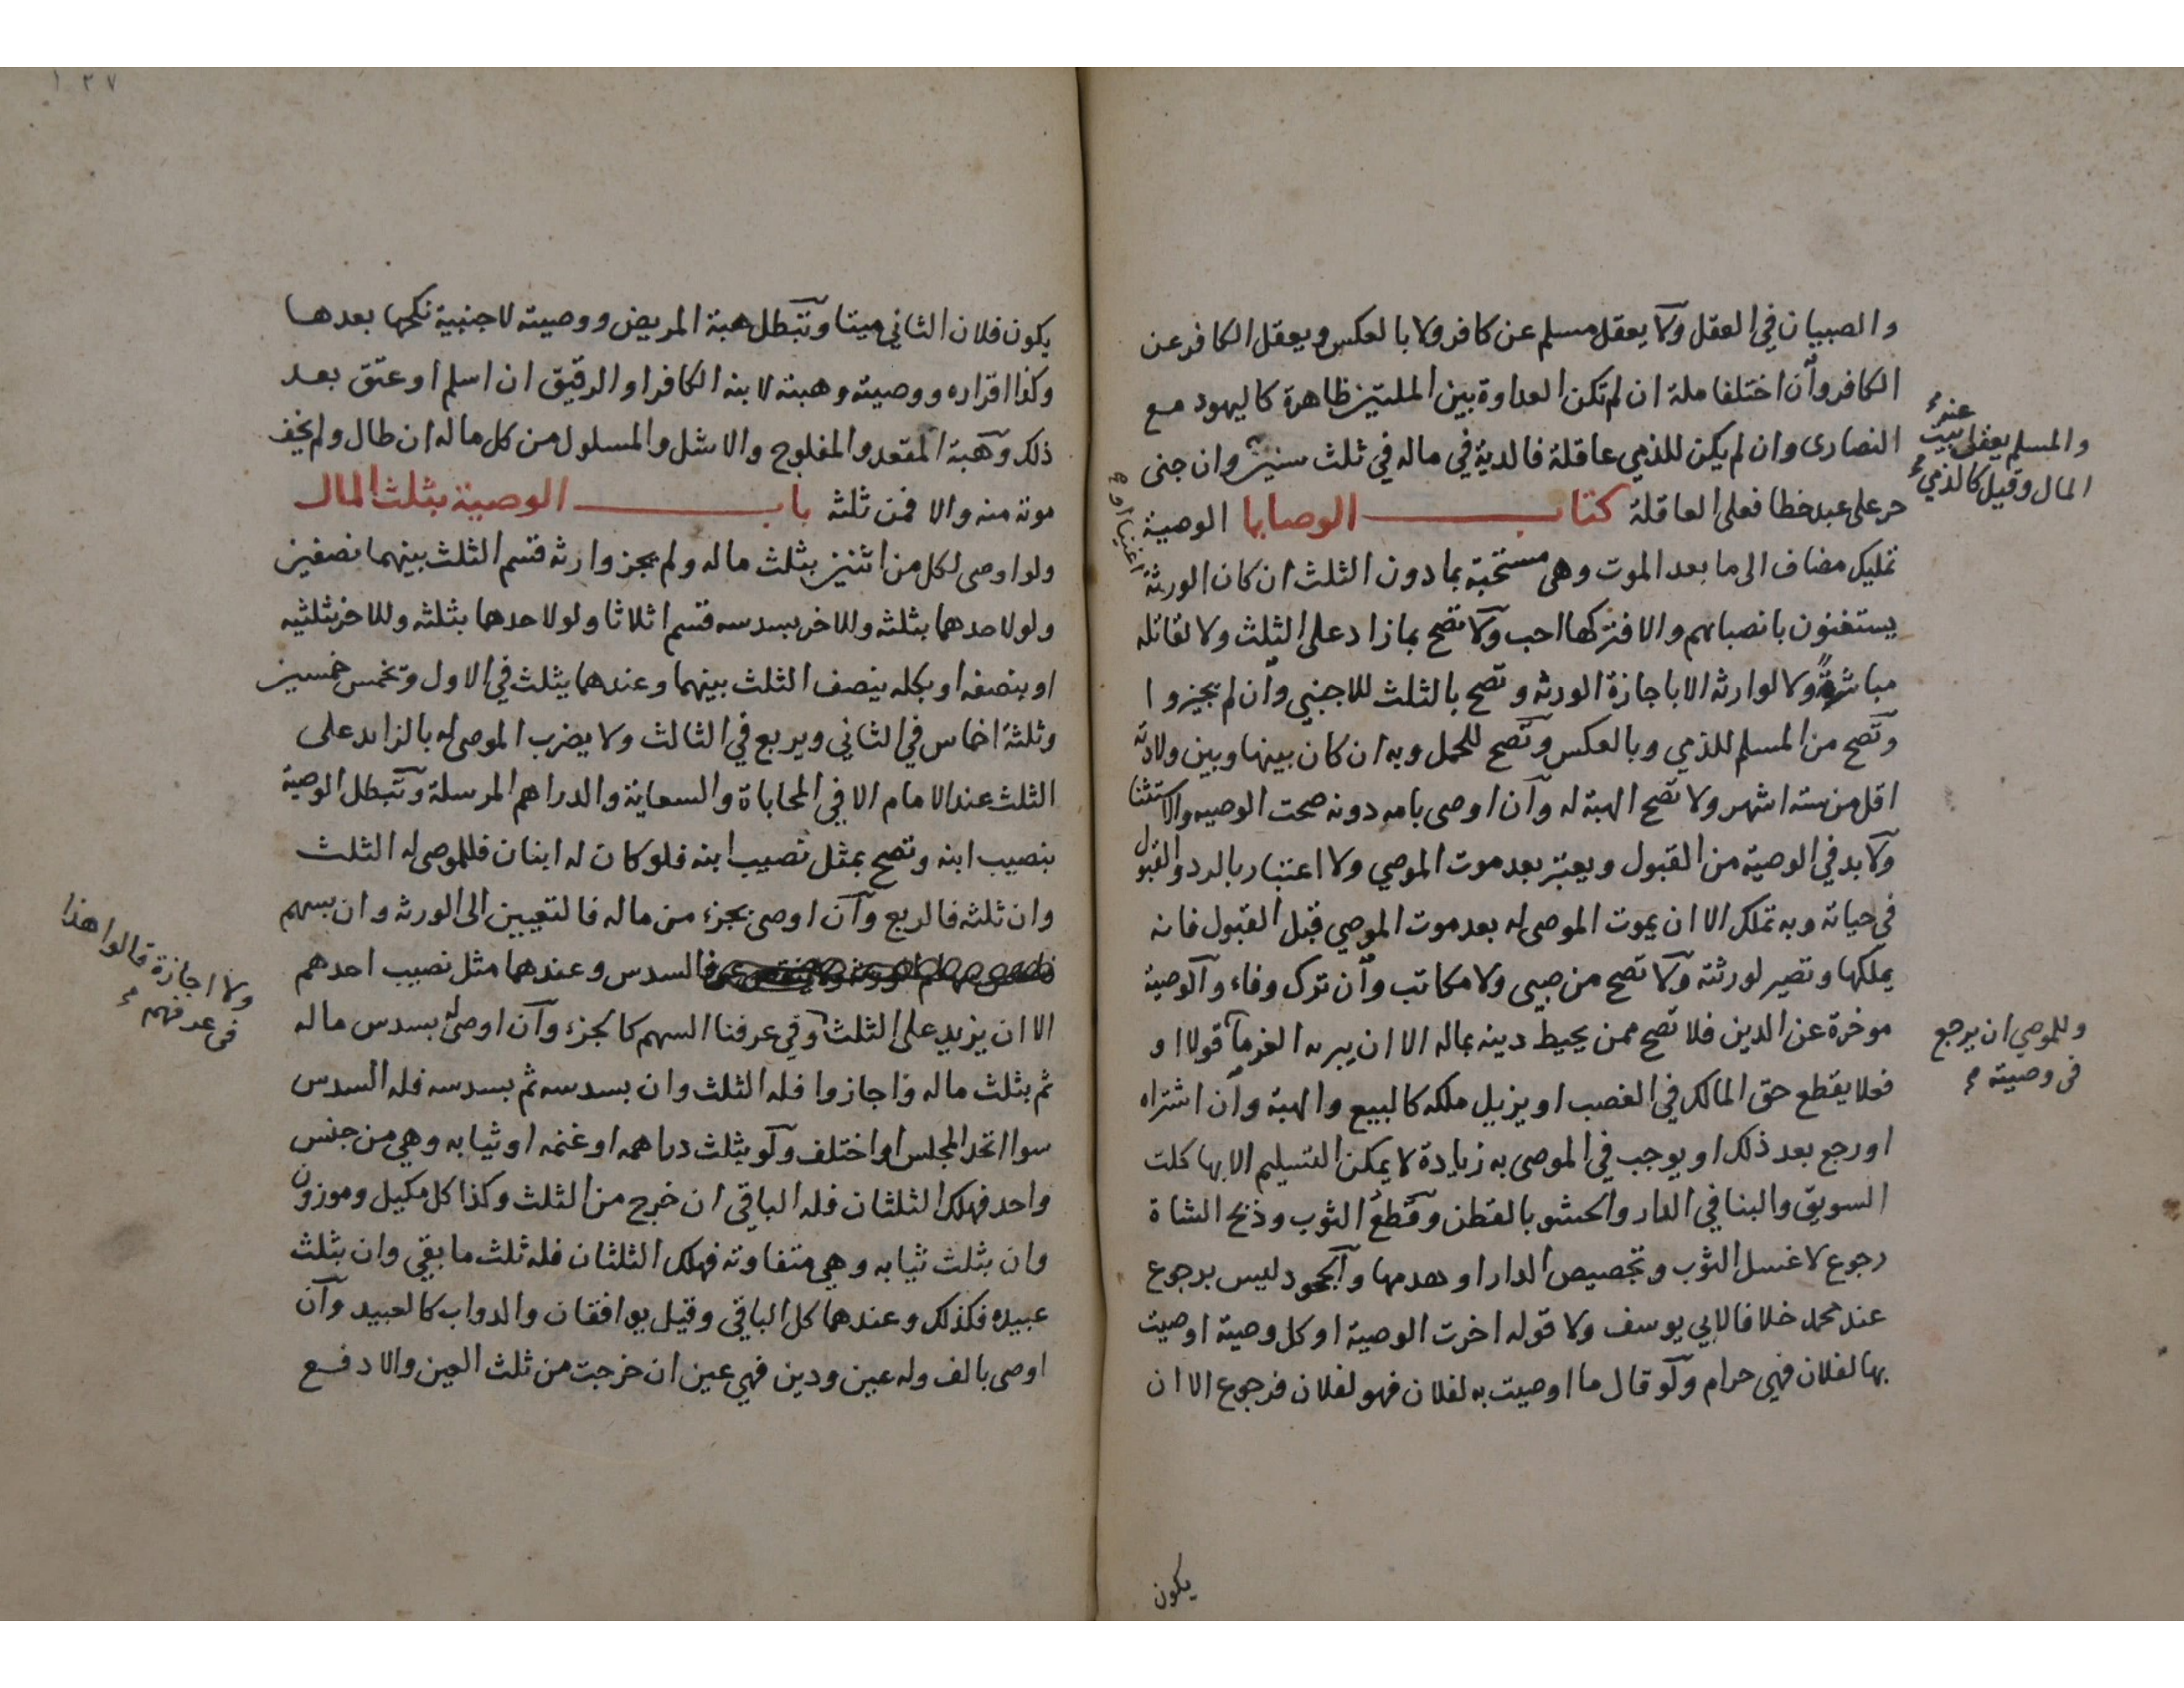 والصبيان في العقل ولا يعقل مسلم عن كافر ولا بالعكس ويعقل الكافر عن
الكافر وان اختلفا ملة ان لم تكن العداوة بين الملتين ظاهرة كاليهود مع
النصارى وان لم يكن للذمي عاقلة فالدية في ماله في ثلث سنين وان جنى
حر على عبد خطا فعلى العاقلة كتاب الوصايا الوصية
تمليك مضاف الى ما بعد الموت وهي مستحبة بما دون الثلث ان كان الورثة
يستغنون بانصبائهم والا فتركها احب ولا تصح بما زاد على الثلث ولا لقاتله
مباشرةً ولا لوارثه الا باجازة الورثه وتصح بالثلث للاجنبي وان لم يجيزوا
وتصح من المسلم للذمي وبالعكس وتصح للحمل وبه ان كان بينها وبين ولادته
اقل من سته اشهر ولا تصح الهبة له وان اوصى بامه دونه صحت الوصيه والاستثنا
ولا بد في الوصية من القبول ويعتبر بعد موت الموصي ولا اعتبار بالرد والقبول
في حياته وبه تملك الا ان يموت الموصى له بعد موت الموصي قبل القبول فانه
يملكها وتصير لورثته ولا تصح من صبى ولا مكاتب وان ترك وفاء والوصية
موخرة عن الدين فلا تصح ممن يحيط دينه بماله الا ان يبريه الغرمآ قولا او
فعلا يقطع حق المالك في الغصب او يزيل ملكه كالبيع والهبة وان اشتراه
او رجع بعد ذلك او يوجب في الموصى به زيادة لا يمكن التسليم الا بها كلت
السويق والبنا في الدار والحشو بالقطن وقطع الثوب وذبح الشاة
رجوع لا غسل الثوب وتجصيص الدار او هدمها والجحود ليس برجوع
عند محمد خلافا لابي يوسف ولا قوله اخرت الوصية او كل وصية اوصيت
بها لفلان فهي حرام ولو قال ما اوصيت به لفلان فهو لفلان فرجوع الا ان
يكون
والمسلم يعقل عنه بيت
المال وقيل كالذمي
اغنيا او
وللموصي ان يرجع
في وصيته
١٢٧
يكون فلان الثاني ميتا وتبطل هبة المريض ووصيته لاجنبية نكحها بعدها
وكذا اقراره ووصيته وهبته لابنه الكافر او الرقيق ان اسلم او عتق بعد
ذلك وهبة المقعد والمفلوج والاشل والمسلول من كل ماله ان طال ولم يخف
موته منه والا فمن ثلثه باب الوصية بثلث المال
ولو اوصى لكل من اثنين بثلث ماله ولم يجز وارثه قسم الثلث بينهما نصفين
ولو لاحدهما بثلثه وللاخر بسدسه قسم اثلاثا ولو لاحدهما بثلثه وللاخر بثلثيه
او بنصفه او بكله ينصف الثلث بينهما وعندهما يثلث في الاول وتخمس خمسين
وثلثة اخماس في الثاني ويربع في الثالث ولا يضرب الموصى له بالزايد على
الثلث عند الامام الا في المحاباة والسعاية والدراهم المرسلة وتبطل الوصية
بنصيب ابنه وتصح بمثل نصيب ابنه فلو كان له ابنان فللموصى له الثلث
وان ثلثه فالربع وان اوصى بجزء من ماله فالتعيين الى الورثه وان بسهم
فالسدس وعندهما مثل نصيب احدهم
الا ان يزيد على الثلث وفي عرفنا السهم كالجزء وان اوصى له بسدس ماله
ثم بثلث ماله واجازوا فله الثلث وان بسدسه ثم بسدسه فله السدس
سوا اتحد المجلس او اختلف ولو بثلث دراهمه او غنمه او ثيابه وهي من جنس
واحد فهلك الثلثان فله الباقي ان خرج من الثلث وكذا كل مكيل وموزون
وان بثلث ثيابه وهي متفاوته فهلك الثلثان فله ثلث ما بقي وان بثلث
عبيده فكذلك وعندهما كل الباقي وقيل يوافقان والدواب كالعبيد وان
اوصى بالف وله عين ودين فهي عين ان خرجت من ثلث العين والا دفع
ولا اجازة قالوا هذا
في عرفهم